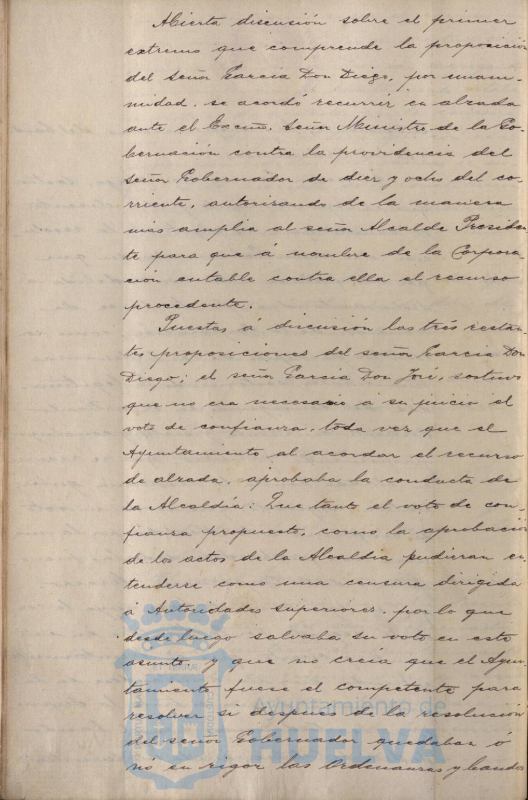 Abierta discusión sobre el primer
extremo que comprende la proposición
del señor García Don Diego, por unani-
midad, se acordó recurrir en alzada
ante el Excmo. Señor Ministro de la Go-
bernación contra la providencia del
señor Gobernador de diez y ocho del co-
rriente, autorizando de la manera
mas amplia al señor Alcalde Presiden-
te para que á nombre de la Corpora-
ción entable contra ella el recurso
procedente.
Puestas á discusión las trés restan-
tes proposiciones del señor García Don
Diego; el señor García Don José, sostuvo
que no era necesario á su juicio el
voto de confianza, toda vez que el
Ayuntamiento al acordar el recurso
de alzada, aprobaba la conducta de
la Alcaldía: Que tanto el voto de con-
fianza propuesto, como la aprobación
de los actos de la Alcaldia pudieran en-
tenderse como una censura dirigida
á Autoridades superiores, por lo que
desde luego salvaba su voto en este
asunto, y que no creia que el Ayun-
tamiento fuese el competente para
resolver si despues de la resolución
del señor Gobernador quedaban ó
nó en rigor las Ordenanzas y bandos
Ayuntamiento de
HUELVA